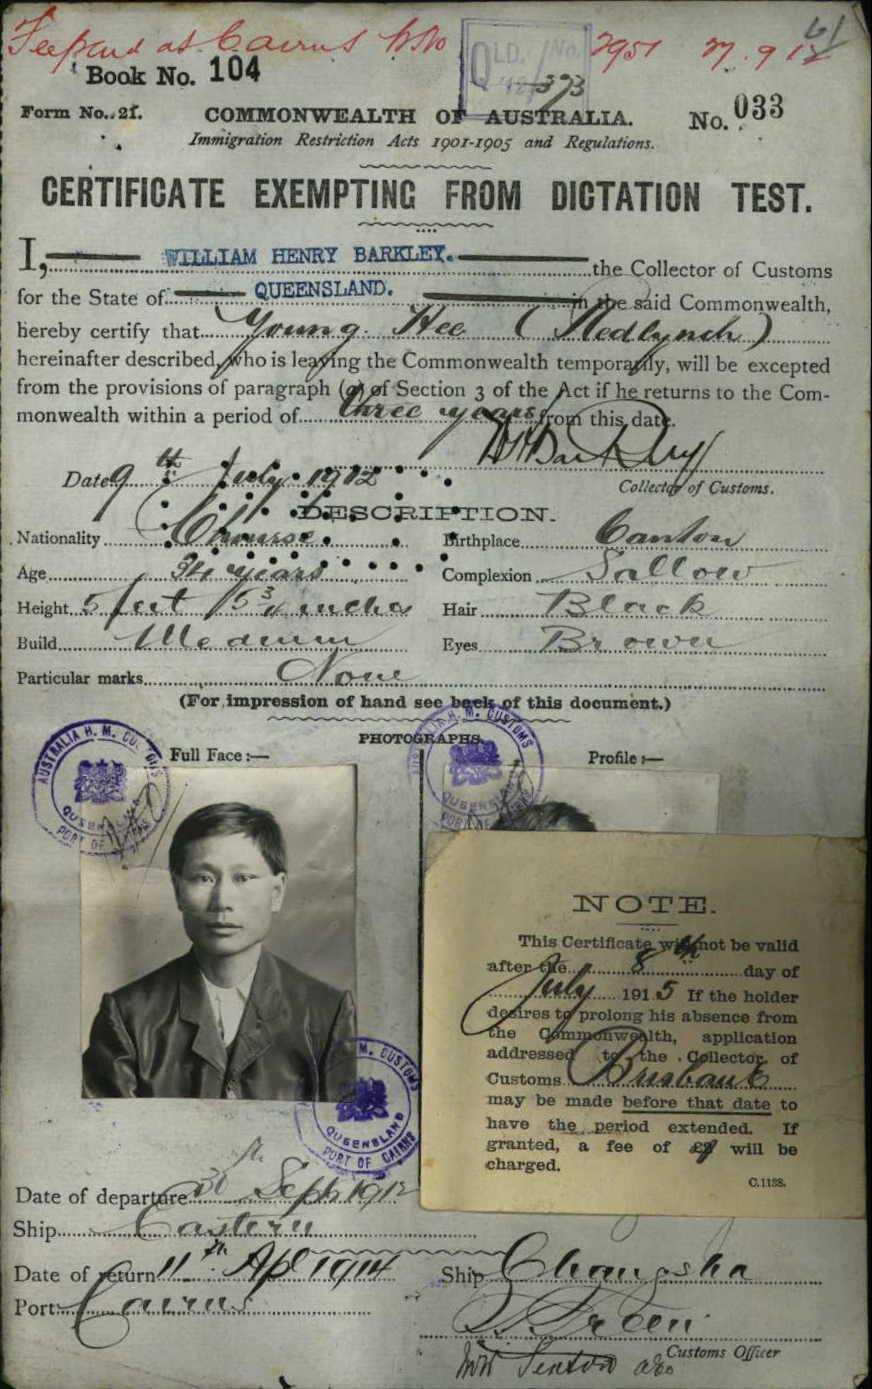 Fee paid at Cairns No 2951 27.9.12
61
QLD. No.
373
Book No. 104
Form No. 21.
COMMONWEALTH OF AUSTRALIA.
No. 033
Immigration Restriction Acts 1901-1905 and Regulations.
CERTIFICATE EXEMPTING FROM DICTATION TEST.
I, WILLIAM HENRY BARKLEY. the Collector of Customs
for the State of QUEENSLAND. in the said Commonwealth,
hereby certify that Young Hee (Redlynch)
hereinafter described, who is leaving the Commonwealth temporarily, will be excepted
from the provisions of paragraph (a) of Section 3 of the Act if he returns to the Com-
monwealth within a period of three years from this date.
WHBarkley
Date 9th July 1912
Collector of Customs.
DESCRIPTION.
Nationality Chinese Birthplace Canton
Age 34 years Complexion Sallow
Height 5 feet 5 3/4 inches Hair Black
Build Medium Eyes Brown
Particular marks None
(For impression of hand see back of this document.)
PHOTOGRAPHS.
Full Face :—
Profile :—
AUSTRALIA H. M. CUSTOMS
QUEENSLAND
PORT OF CAIRNS
AUSTRALIA H. M. CUSTOMS
QUEENSLAND
PORT OF
M. CUSTOMS
QUEENSLAND
PORT OF CAIRNS
NOTE.
This Certificate will not be valid
after the 8th day of
July 1915 If the holder
desires to prolong his absence from
the Commonwealth, application
addressed to the Collector of
Customs Brisbane
may be made before that date to
have the period extended. If
granted, a fee of £1 will be
charged.
C.1138.
Date of departure 30th Sept 1912
Ship Eastern
Date of return 11th Apl 1914 Ship Changsha
Port Cairns
Customs Officer